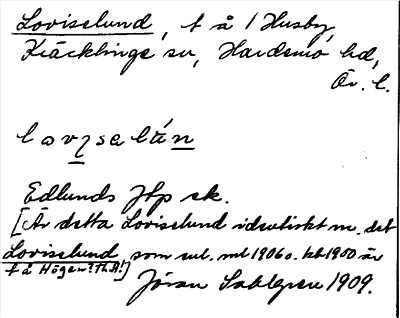 Loviselund, t å 1 Husby,
Kräcklinge sn, Hardemo hd,
Ör. l.
loviselún
Edlunds Htp ek.
[Är detta Loviselund identiskt m. det
Loviselund som enl. ml 1906 o. kb 1900 är
t å Högen? Th.A!]
Jöran Sahlgren 1909.